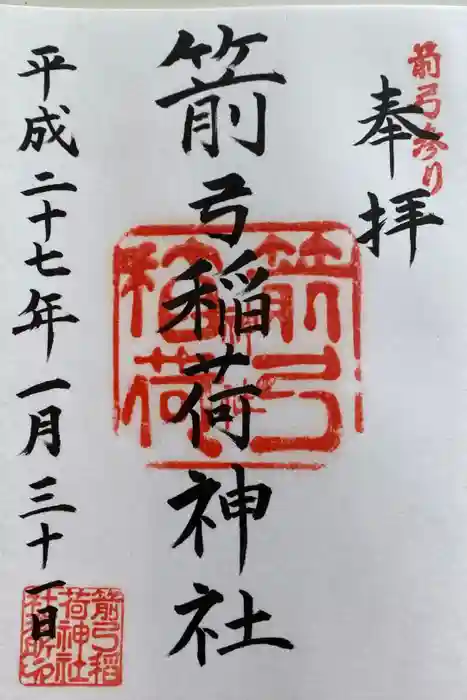 箭弓参り
奉拝
箭弓稲荷神社
箭弓
稲荷
平成二十七年一月三十一日
箭弓稲
荷神社
社務所印